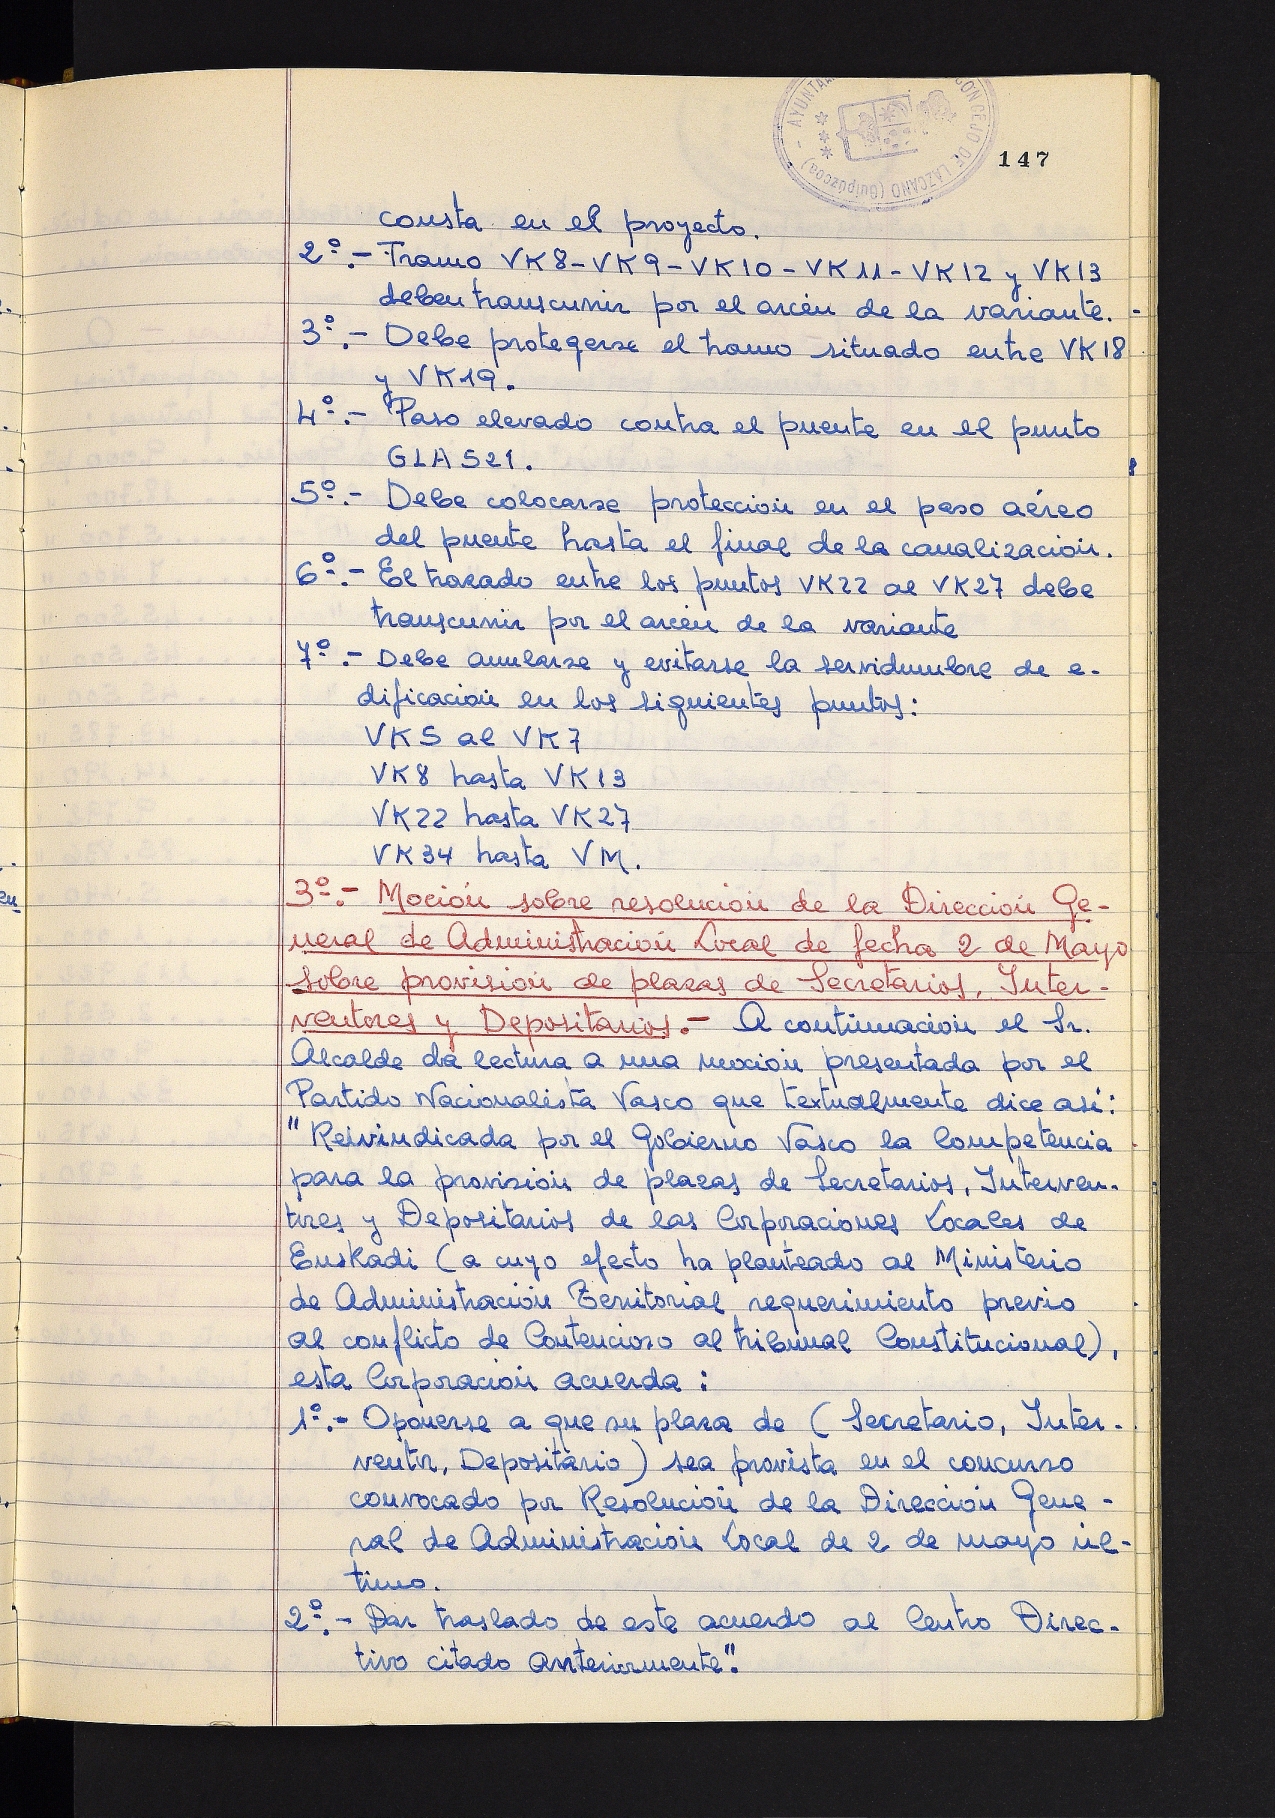 AYUNTA
CONCEJO DE LAZCANO (Guipúzcoa)
147
consta en el proyecto.
2º.- Tramo VK8-VK9-VK10-VK11-VK12 y VK13
deben transcurrir por el arcén de la variante.
3º.- Debe protegerse el tramo situado entre VK18
y VK19.
4º.- Paso elevado contra el puente en el punto
GLA S21.
5º.- Debe colocarse protección en el paso aéreo
del puente hasta el final de la canalización.
6º.- El trazado entre los puntos VK22 al VK27 debe
transcurrir por el arcén de la variante
7º.- Debe anularse y evitarse la servidumbre de e-
dificación en los siguientes puntos:
VK5 al VK7
VK8 hasta VK13
VK22 hasta VK27
VK34 hasta VM.
3º.- Moción sobre resolución de la Dirección Ge-
neral de Administración Local de fecha 2 de Mayo
sobre provisión de plazas de Secretarios, Inter-
ventores y Depositarios.- A continuación el Sr.
Alcalde da lectura a una moción presentada por el
Partido Nacionalista Vasco que textualmente dice así:
"Reivindicada por el Gobierno Vasco la Competencia
para la provisión de plazas de Secretarios, Interven-
tores y Depositarios de las Corporaciones Locales de
Euskadi (a cuyo efecto ha planteado al Ministerio
de Administración Territorial requerimiento previo
al conflicto de Contencioso al tribunal Constitucional),
esta Corporación acuerda:
1º.- Oponerse a que su plaza de (Secretario, Inter-
ventor, Depositario) sea provista en el concurso
convocado por Resolución de la Dirección Gene-
ral de Administración Local de 2 de mayo úl-
timo.
2º.- Dar traslado de este acuerdo al Centro Direc-
tivo citado anteriormente".